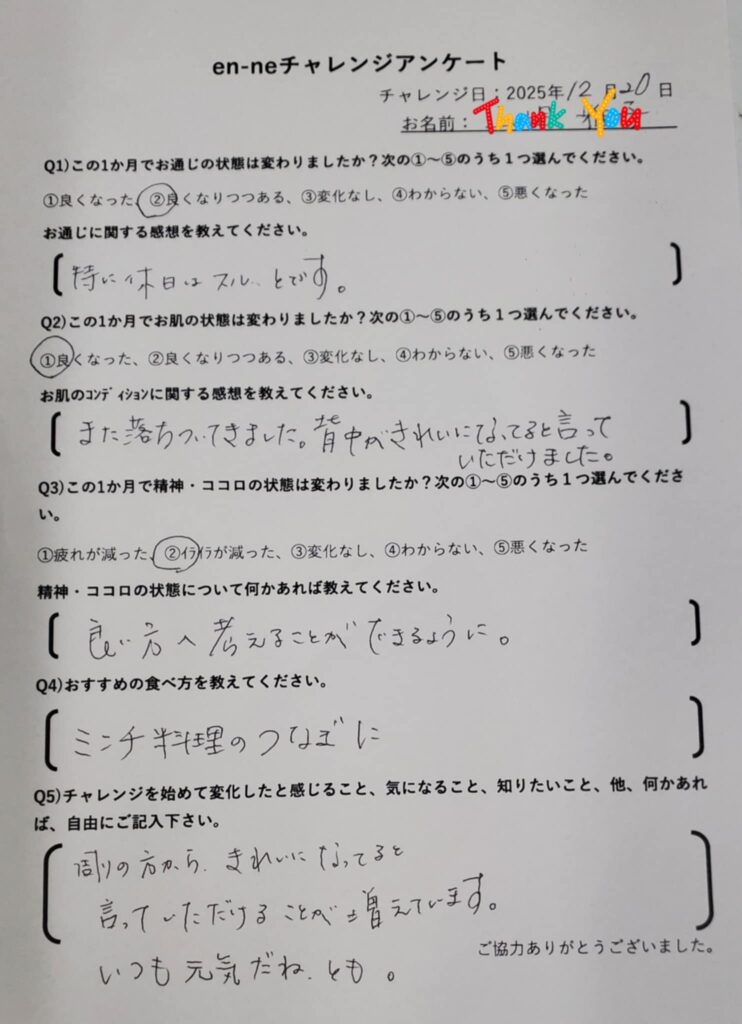 en-neチャレンジアンケート
チャレンジ日：2025年12月20日
お名前：
Thank You
Q1)この1か月でお通じの状態は変わりましたか？次の①～⑤のうち１つ選んでください。
①良くなった、②良くなりつつある、③変化なし、④わからない、⑤悪くなった
お通じに関する感想を教えてください。
特に休日はスルッとです。
Q2)この1か月でお肌の状態は変わりましたか？次の①～⑤のうち１つ選んでください。
①良くなった、②良くなりつつある、③変化なし、④わからない、⑤悪くなった
お肌のｺﾝﾃﾞｨｼｮﾝに関する感想を教えてください。
また落ちついてきました。背中がきれいになってると言って
いただけました。
Q3)この1か月で精神・ココロの状態は変わりましたか？次の①～⑤のうち１つ選んでくださ
い。
①疲れが減った、②ｲﾗｲﾗが減った、③変化なし、④わからない、⑤悪くなった
精神・ココロの状態について何かあれば教えてください。
良い方へ考えることができるように。
Q4)おすすめの食べ方を教えてください。
ミンチ料理のつなぎに
Q5)チャレンジを始めて変化したと感じること、気になること、知りたいこと、他、何かあれ
ば、自由にご記入下さい。
周りの方から、きれいになってると
言っていただけることが増えています。
いつも元気だね、とも。
ご協力ありがとうございました。